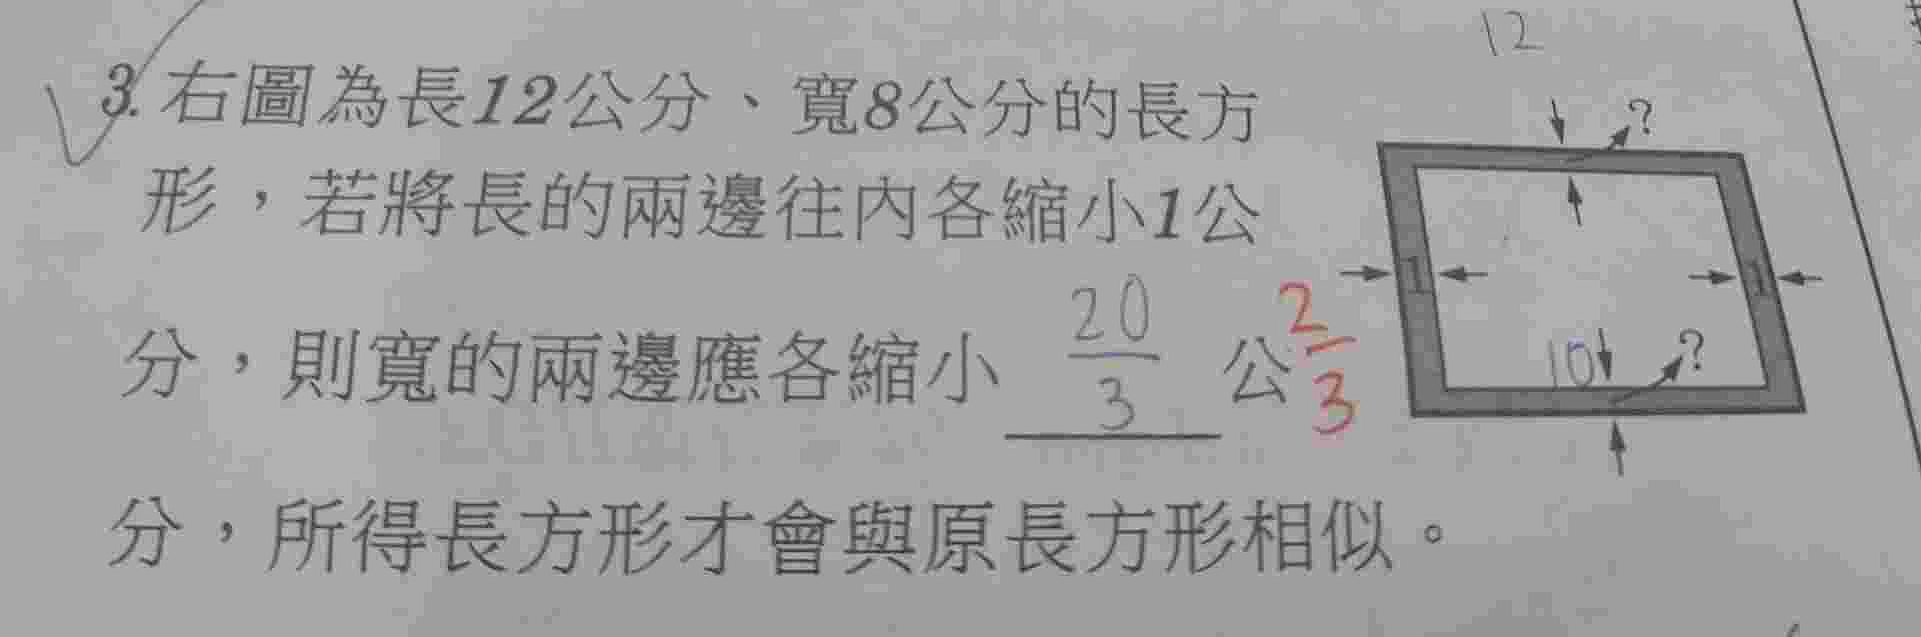 12
3. 右圖為長12公分、寬8公分的長方
?
形,若將長的兩邊往內各縮小1公
1
1
分,則寬的兩邊應各縮小 20/3 公
2/3
10
?
分,所得長方形才會與原長方形相似。